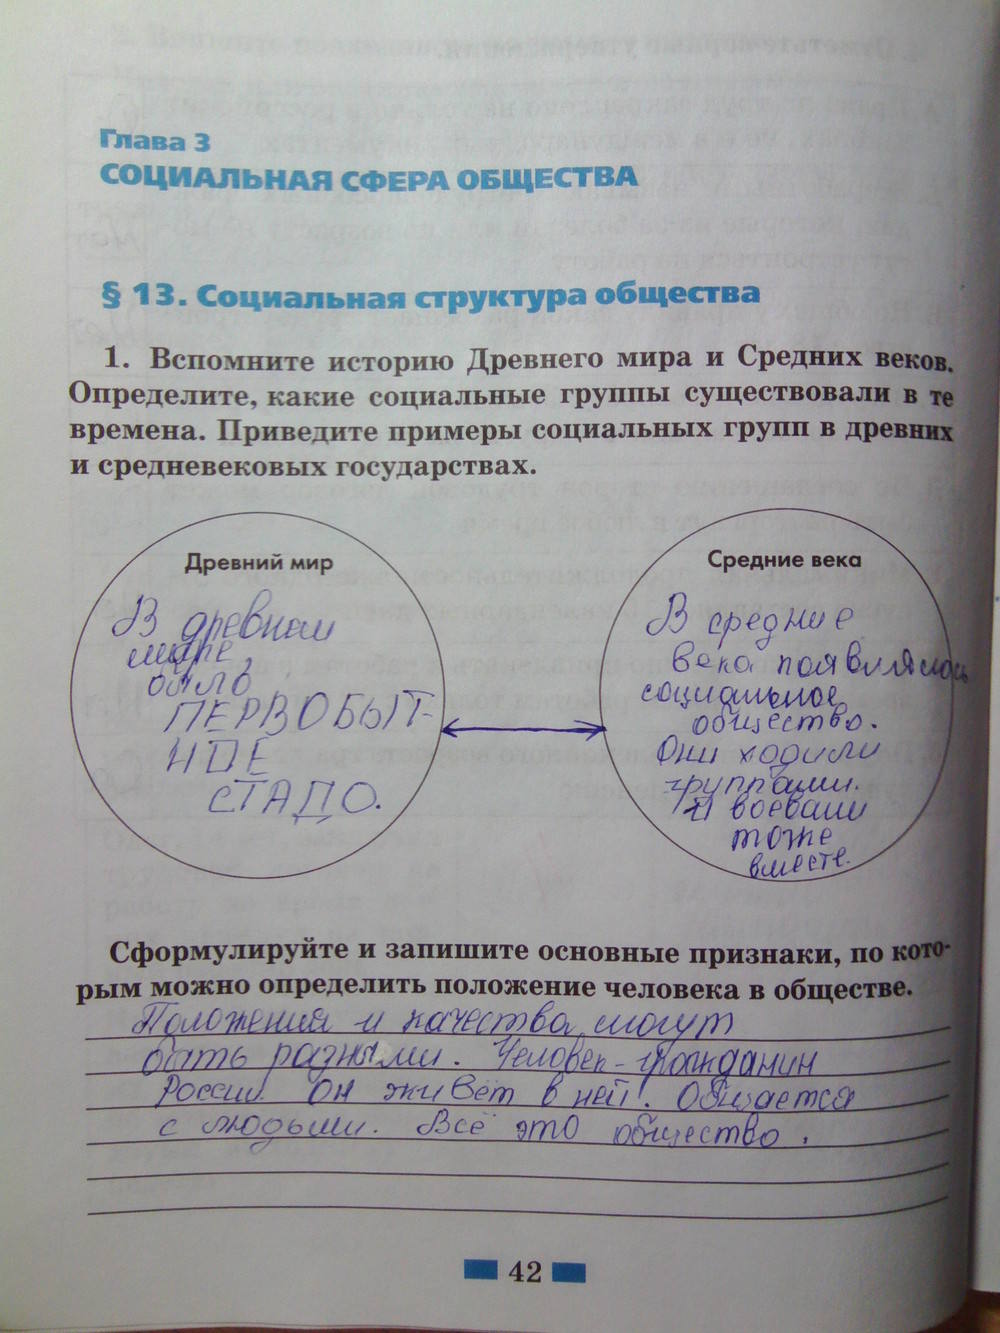 Глава 3
СОЦИАЛЬНАЯ СФЕРА ОБЩЕСТВА
§ 13. Социальная структура общества
1. Вспомните историю Древнего мира и Средних веков.
Определите, какие социальные группы существовали в те
времена. Приведите примеры социальных групп в древних
и средневековых государствах.
Древний мир
В древнем
мире
было
ПЕРВОБЫТ-
НОЕ
СТАДО.
Средние века
В средние
века появлялось
социальное
общество.
Они ходили
группами.
И воевали
тоже
вместе.
Сформулируйте и запишите основные признаки, по кото-
рым можно определить положение человека в обществе.
Положения и качества могут
быть разными. Человек-гражданин
России. Он живёт в ней. Общается
с людьми. Всё это общество.
42